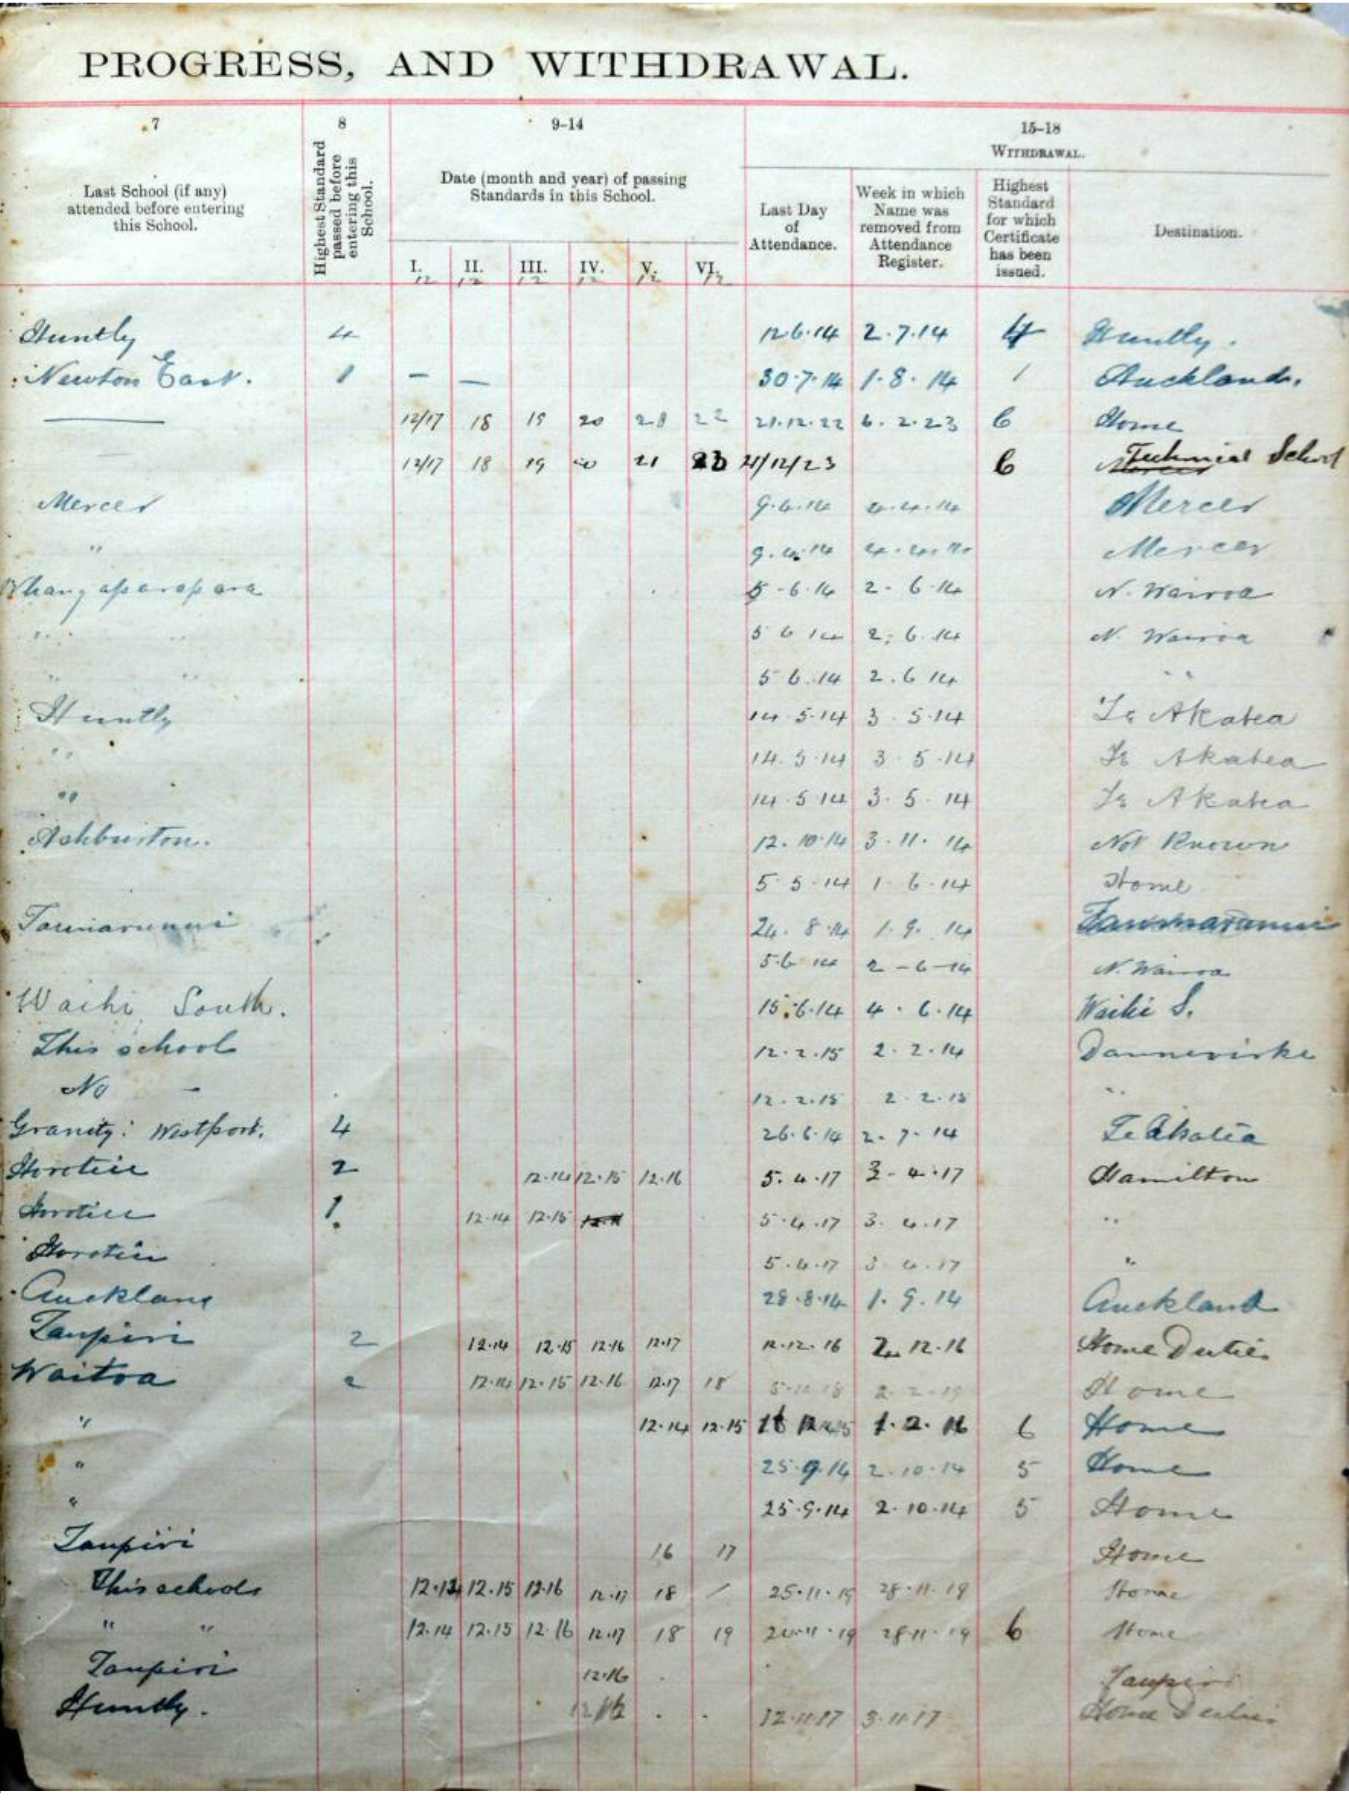 PROGRESS, AND WITHDRAWAL.
7 8 9-14 15-18
WITHDRAWAL.
Last School (if any) attended before entering this School.
Highest Standard passed before entering this School.
Date (month and year) of passing Standards in this School.
I. II. III. IV. V. VI.
12 12 12 12 12 12
Last Day of Attendance.
Week in which Name was removed from Attendance Register.
Highest Standard for which Certificate has been issued.
Destination.
Huntly 4 12.6.14 2.7.14 4 Huntly.
Newton East. 1 — — 30.7.14 1.8.14 1 Auckland.
—— 12/17 18 19 20 21.12.22 6.2.23 6 Home
12/17 18 19 20 21 23 21/12/23 6 Technical School
Mercer 9.4.14 4.4.14 Mercer
" 9.4.14 4.4.14 Mercer
Whangaparapara 5-6.14 2.6.14 N. Wairoa
" " 5 6 14 2.6.14 N. Wairoa
" " 5 6.14 2.6 14 " "
Huntly 14.5.14 3.5.14 Te Akatea
" 14.5.14 3.5.14 Te Akatea
" 14.5 14 3.5.14 Te Akatea
Ashburton. 12.10.14 3.11.14 Not Known
5 5.14 1.6.14 Home
Taumarunui 24.8.14 1.9.14 Taumarunui
5.6 14 2-6-14 N. Wairoa
Waihi South. 15.6.14 4.6.14 Waihi S.
This school 12.2.15 2.2.14 Dannevirke
No - 12.2.15 2.2.15 "
Granity: Westport. 4 26.6.14 2.7.14 Te Akatea
Horotiu 2 12.14 12.15 12.16 5.4.17 3-4.17 Hamilton
Horotiu 1. 12.14 12.15 5.4.17 3.4.17 "
Horotiu 5.4.17 3.4.17 "
Auckland 28.8.14 1.9.14 Auckland
Taupiri 2 12.14 12.15 12.16 12.17 12.16 2.12.16 Home Duties
Waitoa 2 12.14 12.15 12.16 12.17 18 2.2.19 Home
" 12.14 12.15 1.2.16 6 Home
" 25.9.14 2.10.14 5 Home
" 25.9.14 2.10.14 5 Home
Taupiri 16 17 Home
This school 12.15 12.16 12.17 18 / 25.11.19 28.11.19 Home
" " 12.14 12.15 12.16 12.17 18 19 28.11.19 6 Home
Taupiri 12.16 Taupiri
Huntly. 12.11.17 3.11.17 Home Duties